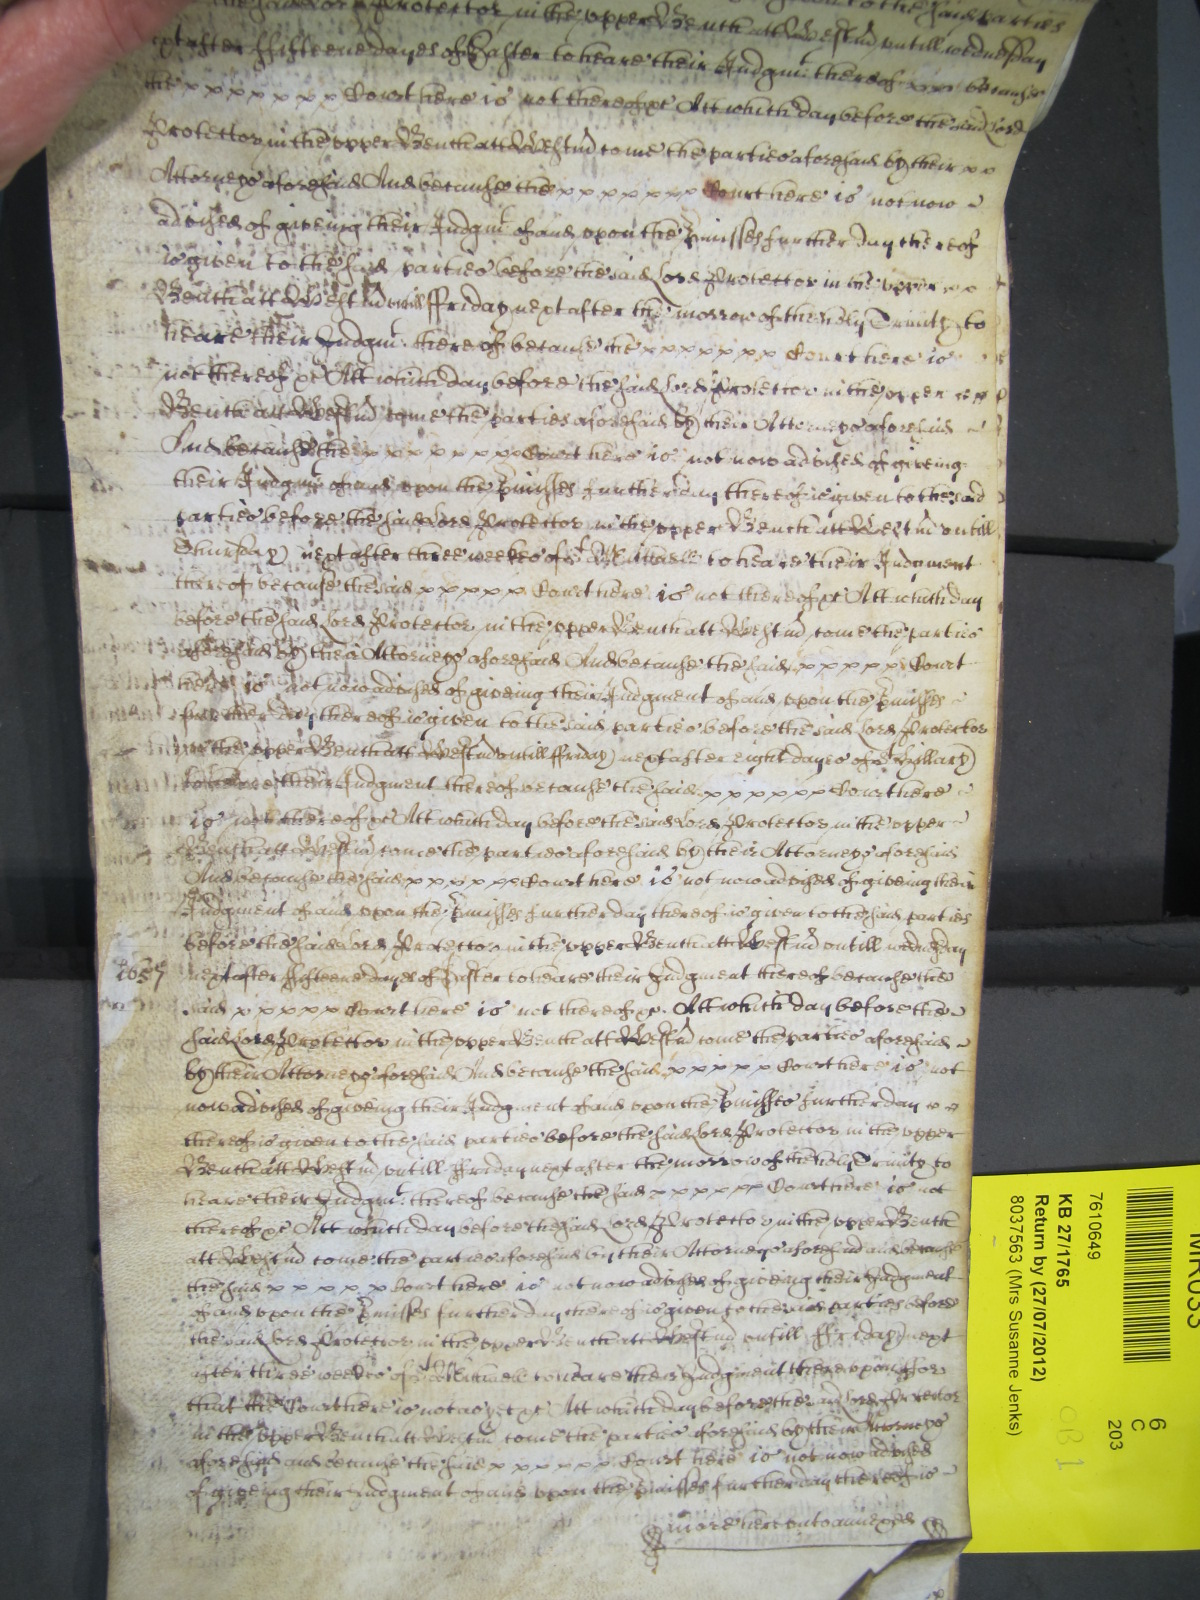 said Lord Protector in the upper Bench att Westmr untill wednesday
next after fifteene dayes of Easter to heare their Judgmt thereof xxx because
the x x x x x x x Court here is not thereof &c Att which day before the said Lord
Protector in the upper Bench att Westmr come the parties aforesaid by their x x
Attorneys aforesaid And because the x x x x x x x Court here is not now
advised of giveing their Judgmt of and upon the pmisses further day thereof
is given to the said parties before the said Lord Protector in the upper x x
Bench att Westmr untill ffriday next after the morrow of the holy Trinity to
heare their Judgmt thereof because the x x x x x x x Court here is
not thereof &c Att which day before the said Lord Protector in the upper
Bench att Westmr come the parties aforesaid by their Attorneys aforesaid
And because the x x x x x x x Court here is not now advised of giveing
their Judgmt of and upon the pmisses further day thereof is given to the said
parties before the said Lord Protector in the upper Bench att Westmr untill
Thursday next after three weekes of St Michaell to heare their Judgment
thereof because the said x x x x x Court here is not thereof &c Att which day
before the said Lord Protector in the upper Bench att Westmr come the parties
aforesaid by their Attorneys aforesaid And because the said x x x x x Court
here is not now advised of giveing their Judgment of and upon the pmisses
further day thereof is given to the said parties before the said Lord Protector
in the upper Bench att Westmr untill ffriday next after eight dayes of St Hillary
to heare their Judgment thereof because the said x x x x x x Court here
is not thereof &c Att which day before the said Lord Protector in the upper
Bench att Westmr come the parties aforesaid by their Attorneys aforesaid
And because the said x x x x x x Court here is not now advised of giveing their
Judgment of and upon the pmisses further day thereof is given to the said parties
before the said Lord Protector in the upper Bench att Westmr untill wednesday
1657 next after fifteene dayes of Easter to heare their Judgment thereof because the
said x x x x x Court here is not thereof &c. Att which day before the
said Lord Protector in the upper Bench att Westmr come the parties aforesaid
by their Attorneys aforesaid And because the said x x x x x Court here is not
now advised of giveing their Judgment of and upon the pmisses further day x x
thereof is given to the said parties before the said Lord Protector in the upper
Bench att Westmr untill ffriday next after the morrow of the holy Trinity to
heare their Judgmt thereof because the said x x x x x x Court here is not
thereof &c Att which day before the said Lord Protector in the upper Bench
att Westmr come the parties aforesaid by their Attorneys aforesaid and because
the said x x x x x Court here is not now advised of giveing their Judgment
of and upon the pmisses further day thereof is given to the said parties before
the said Lord Protector in the upper Bench att Westmr untill ffriday next
after three weekes of St Michaell to heare their Judgment thereupon for
that the Court here is not as yet &c Att which day before the said Lord Protector
in the upper Bench att Westmr come the parties aforesaid by their Attorneys
aforesaid and because the said x x x x x Court here is not now advised
of giveing their Judgment of and upon the pmisses further day thereof is
more hereunto annexed
7610649
KB 27/1765
Return by (27/07/2012)
8037563 (Mrs Susanne Jenks)
6
C
203